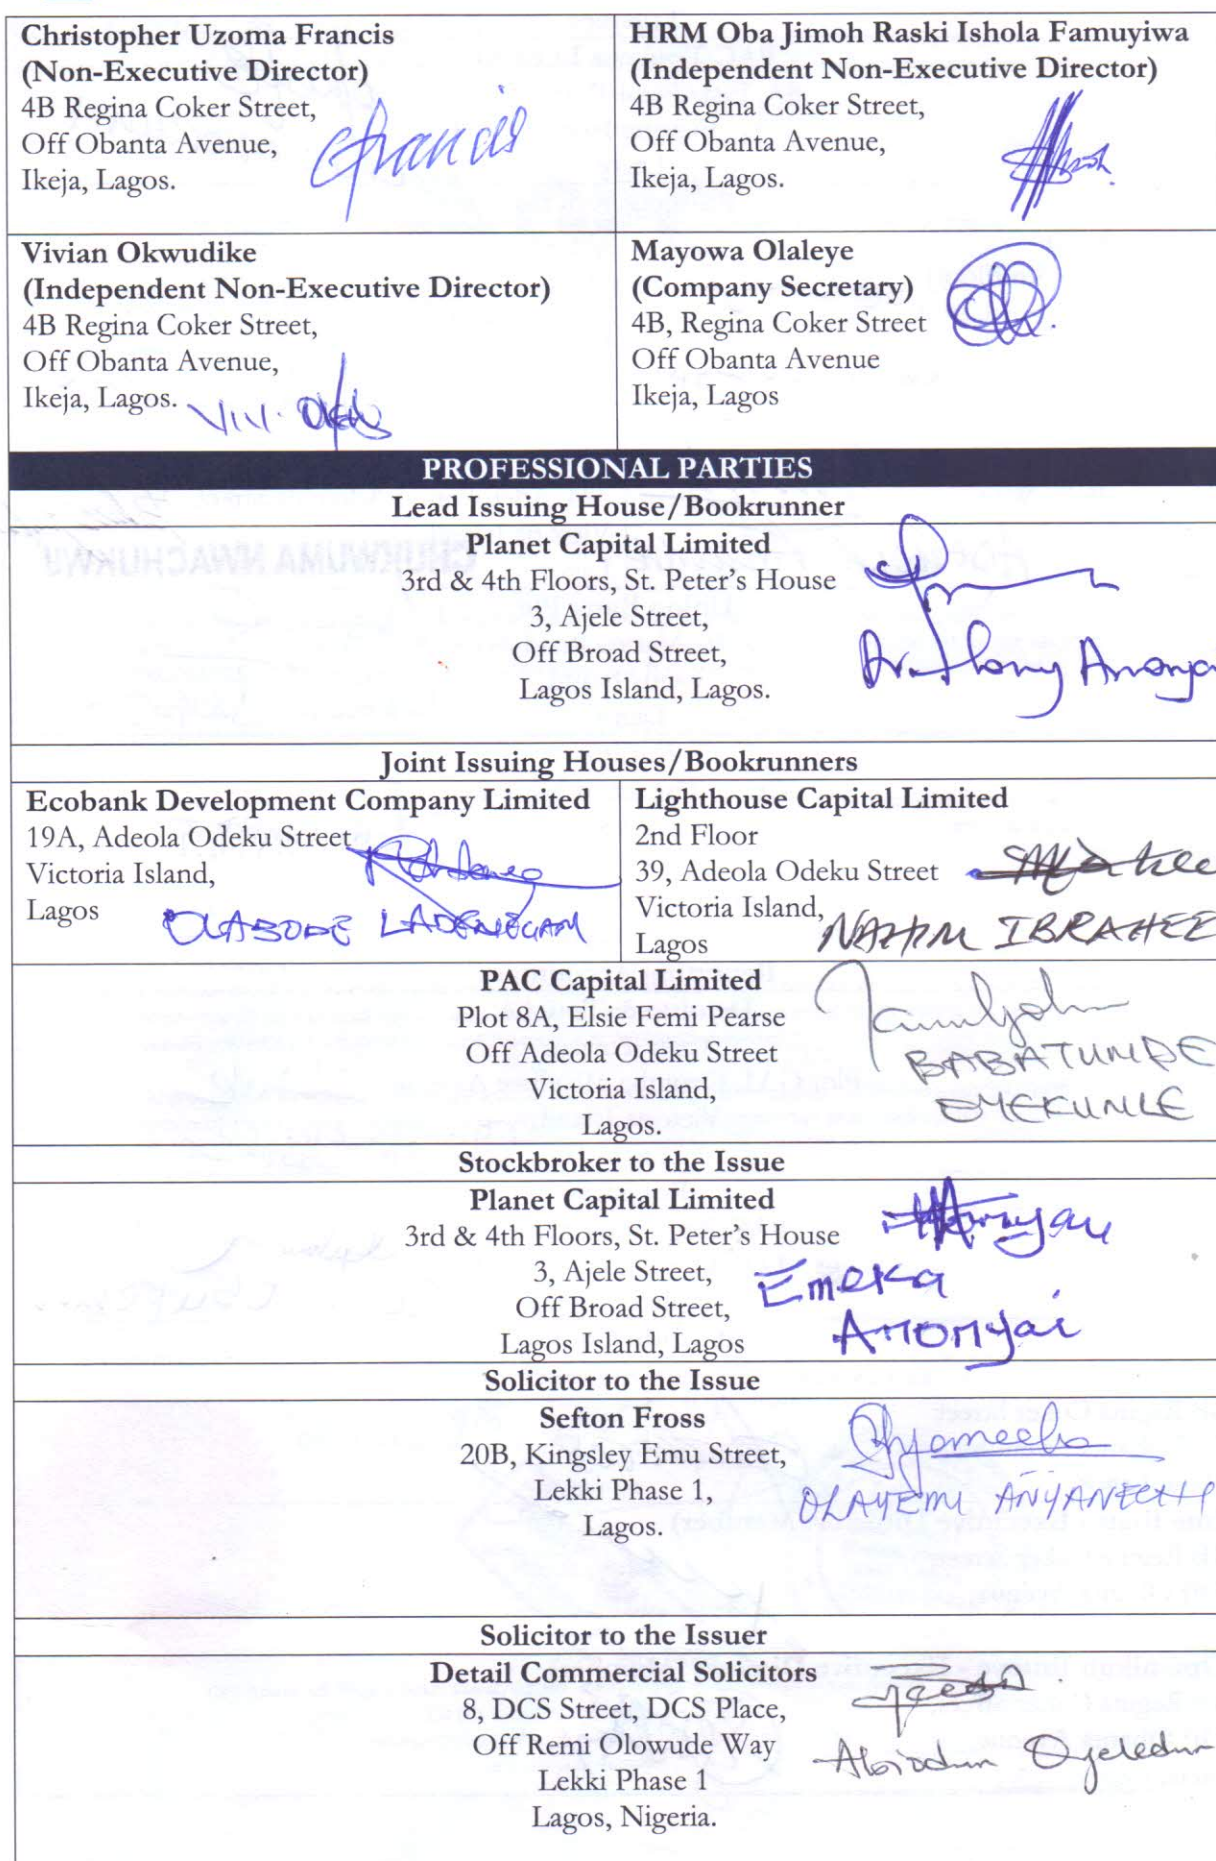 Christopher Uzoma Francis
(Non-Executive Director)
4B Regina Coker Street,
Off Obanta Avenue,
Ikeja, Lagos.
HRM Oba Jimoh Raski Ishola Famuyiwa
(Independent Non-Executive Director)
4B Regina Coker Street,
Off Obanta Avenue,
Ikeja, Lagos.
Vivian Okwudike
(Independent Non-Executive Director)
4B Regina Coker Street,
Off Obanta Avenue,
Ikeja, Lagos.
Mayowa Olaleye
(Company Secretary)
4B, Regina Coker Street
Off Obanta Avenue
Ikeja, Lagos
PROFESSIONAL PARTIES
Lead Issuing House/Bookrunner
Planet Capital Limited
3rd & 4th Floors, St. Peter's House
3, Ajele Street,
Off Broad Street,
Lagos Island, Lagos.
Joint Issuing Houses/Bookrunners
Ecobank Development Company Limited
19A, Adeola Odeku Street
Victoria Island,
Lagos
OLABODE
Lighthouse Capital Limited
2nd Floor
39, Adeola Odeku Street
Victoria Island,
Lagos
IBRAHEE
PAC Capital Limited
Plot 8A, Elsie Femi Pearse
Off Adeola Odeku Street
Victoria Island,
Lagos.
BABATUNDE
OYEKUNLE
Stockbroker to the Issue
Planet Capital Limited
3rd & 4th Floors, St. Peter's House
3, Ajele Street,
Off Broad Street,
Lagos Island, Lagos
Emeka
Anonyai
Solicitor to the Issue
Sefton Fross
20B, Kingsley Emu Street,
Lekki Phase 1,
Lagos.
OLAYEMI
Solicitor to the Issuer
Detail Commercial Solicitors
8, DCS Street, DCS Place,
Off Remi Olowude Way
Lekki Phase 1
Lagos, Nigeria.
Abiodun